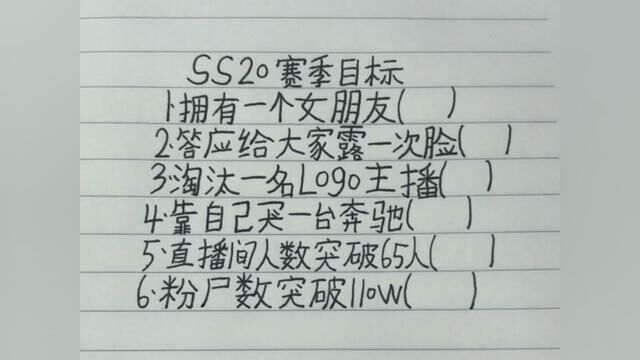 SS20赛季目标
1拥有一个女朋友( )
2.答应给大家露一次脸( )
3.淘汰一名Logo主播( )
4.靠自己买一台奔驰( )
5.直播间人数突破65人( )
6.粉尸数突破110w( )